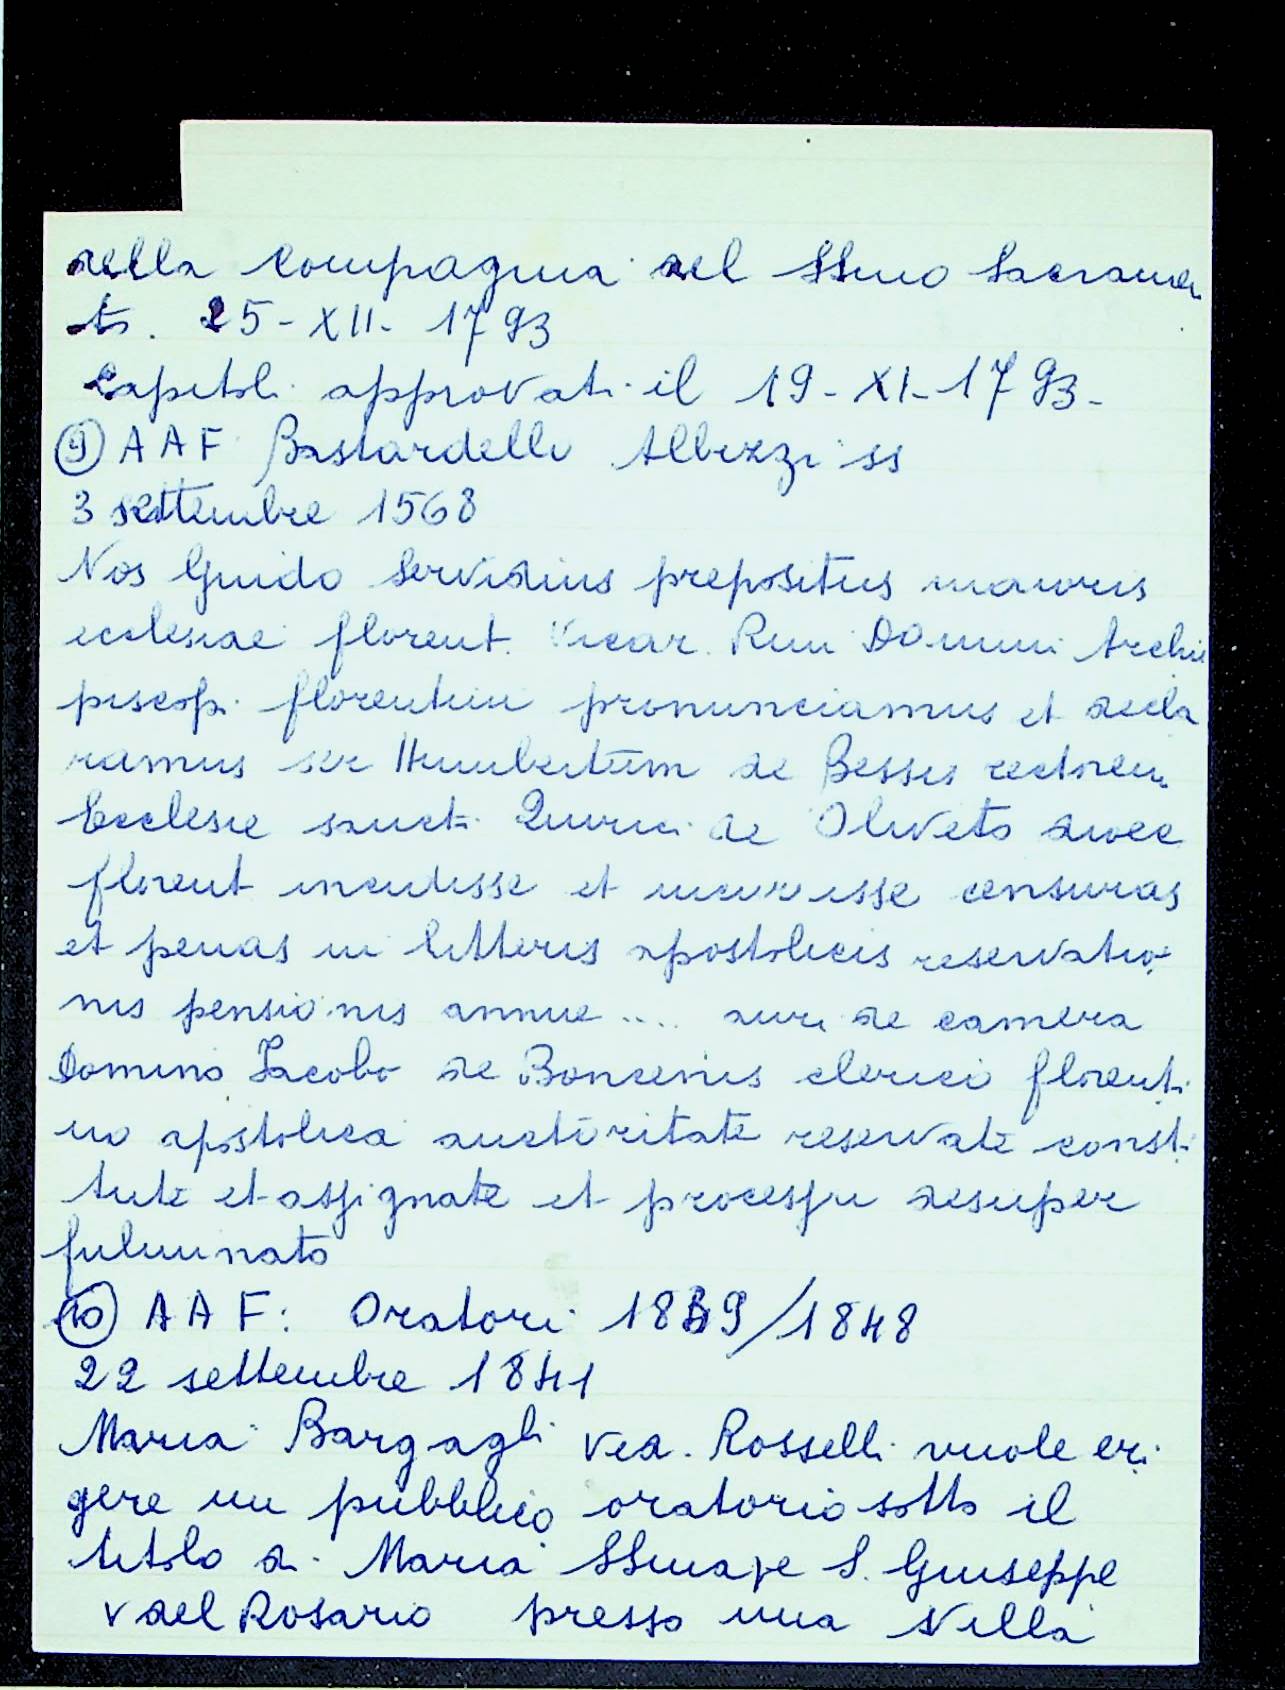 della Compagnia del SSmo Sacramen
to. 25-XII- 1793
Capitoli approvati il 19-XI-1793-
9 AAF Bastardello Albizzi ss
3 settembre 1568
Nos Guido Servidius prepositus maioris
ecclesiae florent. Vicar. Rmi Domini Archie
piscopi florentini pronunciamus et decla
ramus ser Humbertum de Bessis rectorem
Ecclesie sancti Quirici de Oliveto dioec
florent incidisse et incurisse censuras
et penas in litteris apostolicis reservatio
nis pensionis annue .... auri de camera
Domino Iacobo de Bonsenis clerico florenti
no apostolica auctoritate reservate consti
tute et assignate et processu desuper
fulminato
10 AAF: Oratori 1839/1848
22 settembre 1841
Maria Bargagli ved. Rosselli vuole eri
gere un pubblico oratorio sotto il
titolo di Maria SSma e S. Giuseppe
v del Rosario presso una Villa